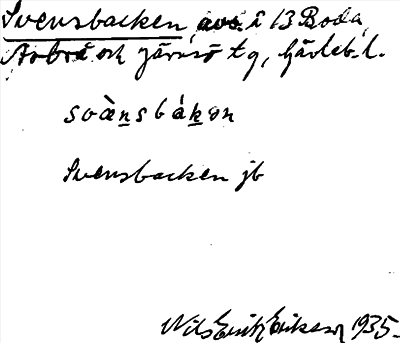 Svensbacken, avs. i 13 Boda,
Arbrå och Järvsö tg, Gävleb. l.
svànsbákən
Svensbacken jb
Nils Erik Eriksson 1935.